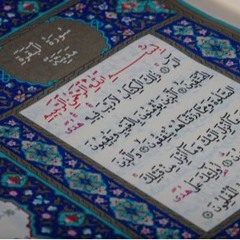 سورة البقرة
مدنية
بسم الله الرحمن الرحيم
الم ذلك الكتب لا ريب فيه هدى
للمتقين الذين يؤمنون بالغيب ويقيمون
الصلوة ومما رزقنهم ينفقون والذين
بما أنزل إليك وما أنزل من قبلك
أولئك على هدى
المفلحون